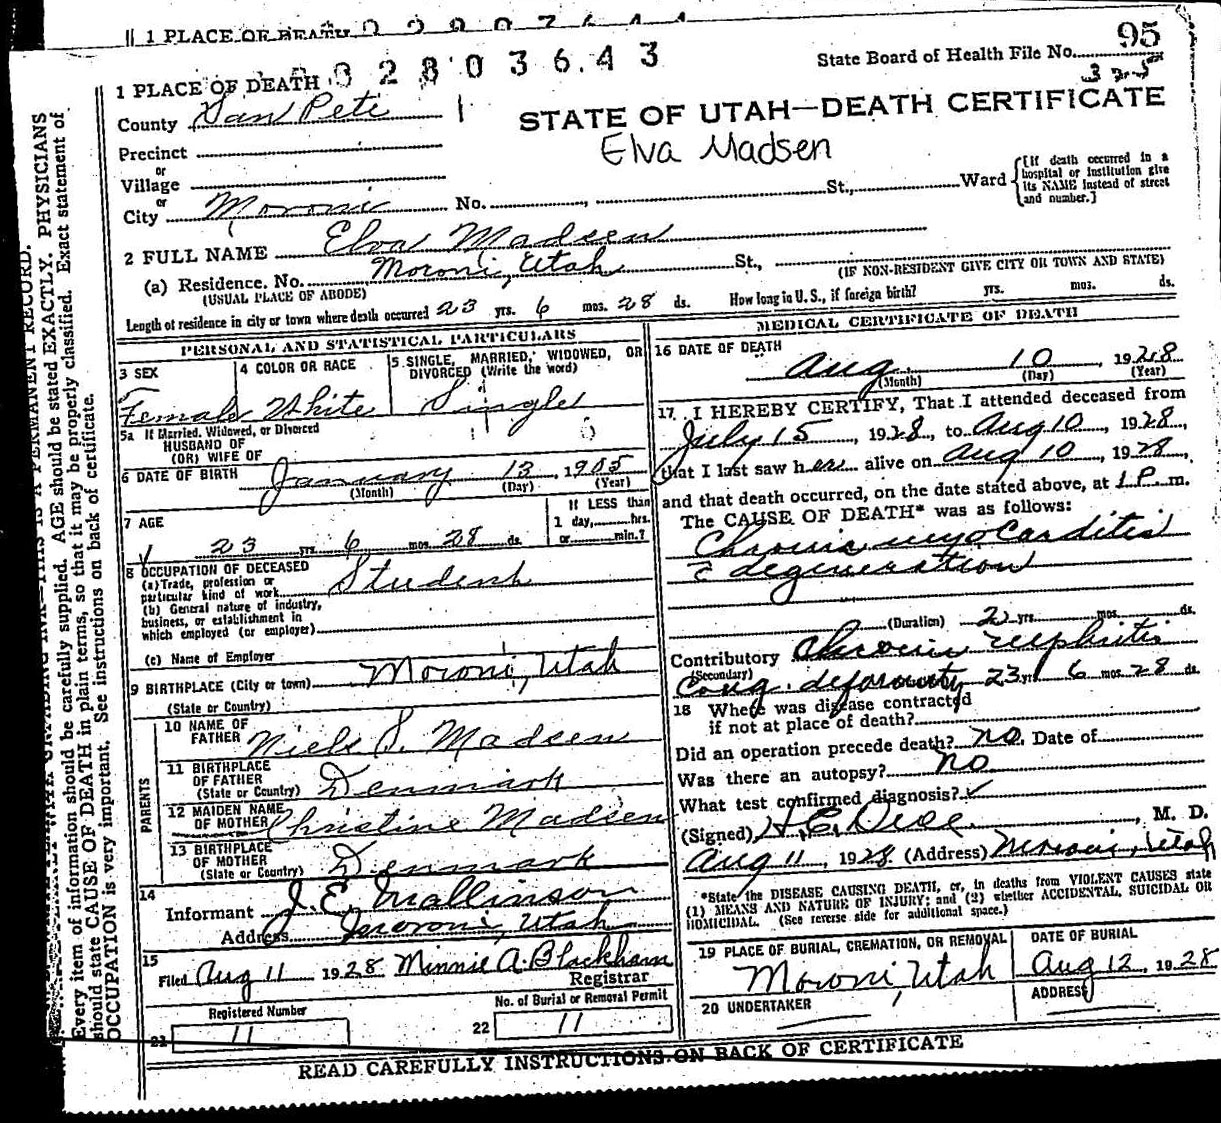 1 PLACE OF DEATH
95
State Board of Health File No.
325
0 2 8 0 3 6 4 3
1 PLACE OF DEATH
County San Pete
STATE OF UTAH—DEATH CERTIFICATE
Elva Madsen
Precinct
or
Village
or
City Moroni No. , St., Ward
{[If death occurred in a
hospital or institution give
its NAME instead of street
and number.]
2 FULL NAME Elva Madsen
(a) Residence. No. Moroni, Utah St.,
(USUAL PLACE OF ABODE)
(IF NON-RESIDENT GIVE CITY OR TOWN AND STATE)
Length of residence in city or town where death occurred 23 yrs. 6 mos. 28 ds. How long in U. S., if foreign birth? yrs. mos. ds.
PERSONAL AND STATISTICAL PARTICULARS
3 SEX
Female
4 COLOR OR RACE
White
5 SINGLE, MARRIED, WIDOWED, OR
DIVORCED (Write the word)
Single
5a If Married, Widowed, or Divorced
HUSBAND OF
(OR) WIFE OF
6 DATE OF BIRTH January 13, 1905
(Month) (Day) (Year)
7 AGE
23 yrs. 6 mos. 28 ds.
If LESS than
1 day, hrs.
or min.?
8 OCCUPATION OF DECEASED
(a) Trade, profession or
particular kind of work Student
(b) General nature of industry,
business, or establishment in
which employed (or employer)
(c) Name of Employer
9 BIRTHPLACE (City or town) Moroni, Utah
(State or Country)
PARENTS
10 NAME OF
FATHER Niels S. Madsen
11 BIRTHPLACE
OF FATHER
(State or Country) Denmark
12 MAIDEN NAME
OF MOTHER Christine Madsen
13 BIRTHPLACE
OF MOTHER
(State or Country) Denmark
14
Informant J. E. Mallinson
Address Moroni, Utah
15
Filed Aug 11 1928 Minnie A. Blackham
Registrar
Registered Number
21 11
No. of Burial or Removal Permit
22 11
MEDICAL CERTIFICATE OF DEATH
16 DATE OF DEATH
Aug. 10, 1928
(Month) (Day) (Year)
17 I HEREBY CERTIFY, That I attended deceased from
July 15, 1928, to Aug 10, 1928,
that I last saw her alive on Aug 10, 1928,
and that death occurred, on the date stated above, at 1 P. m.
The CAUSE OF DEATH* was as follows:
Chronic myocarditis
c degeneration
(Duration) 2 yrs. mos. ds.
Contributory Chronic nephritis
(Secondary)
Cong. deformity 23 yrs 6 mos. 28 ds.
18 Where was disease contracted
if not at place of death?
Did an operation precede death? no. Date of
Was there an autopsy? no
What test confirmed diagnosis? ✓
(Signed) H. C. , M. D.
Aug 11, 1928. (Address) Moroni, Utah
*State the DISEASE CAUSING DEATH, or, in deaths from VIOLENT CAUSES state
(1) MEANS AND NATURE OF INJURY; and (2) whether ACCIDENTAL, SUICIDAL OR
HOMICIDAL. (See reverse side for additional space.)
19 PLACE OF BURIAL, CREMATION, OR REMOVAL
Moroni, Utah
DATE OF BURIAL
Aug 12, 1928
20 UNDERTAKER
ADDRESS
READ CAREFULLY INSTRUCTIONS ON BACK OF CERTIFICATE
THIS IS A PERMANENT RECORD.
Every item of information should be carefully supplied. AGE should be stated EXACTLY. PHYSICIANS
should state CAUSE OF DEATH in plain terms, so that it may be properly classified. Exact statement of
OCCUPATION is very important. See instructions on back of certificate.